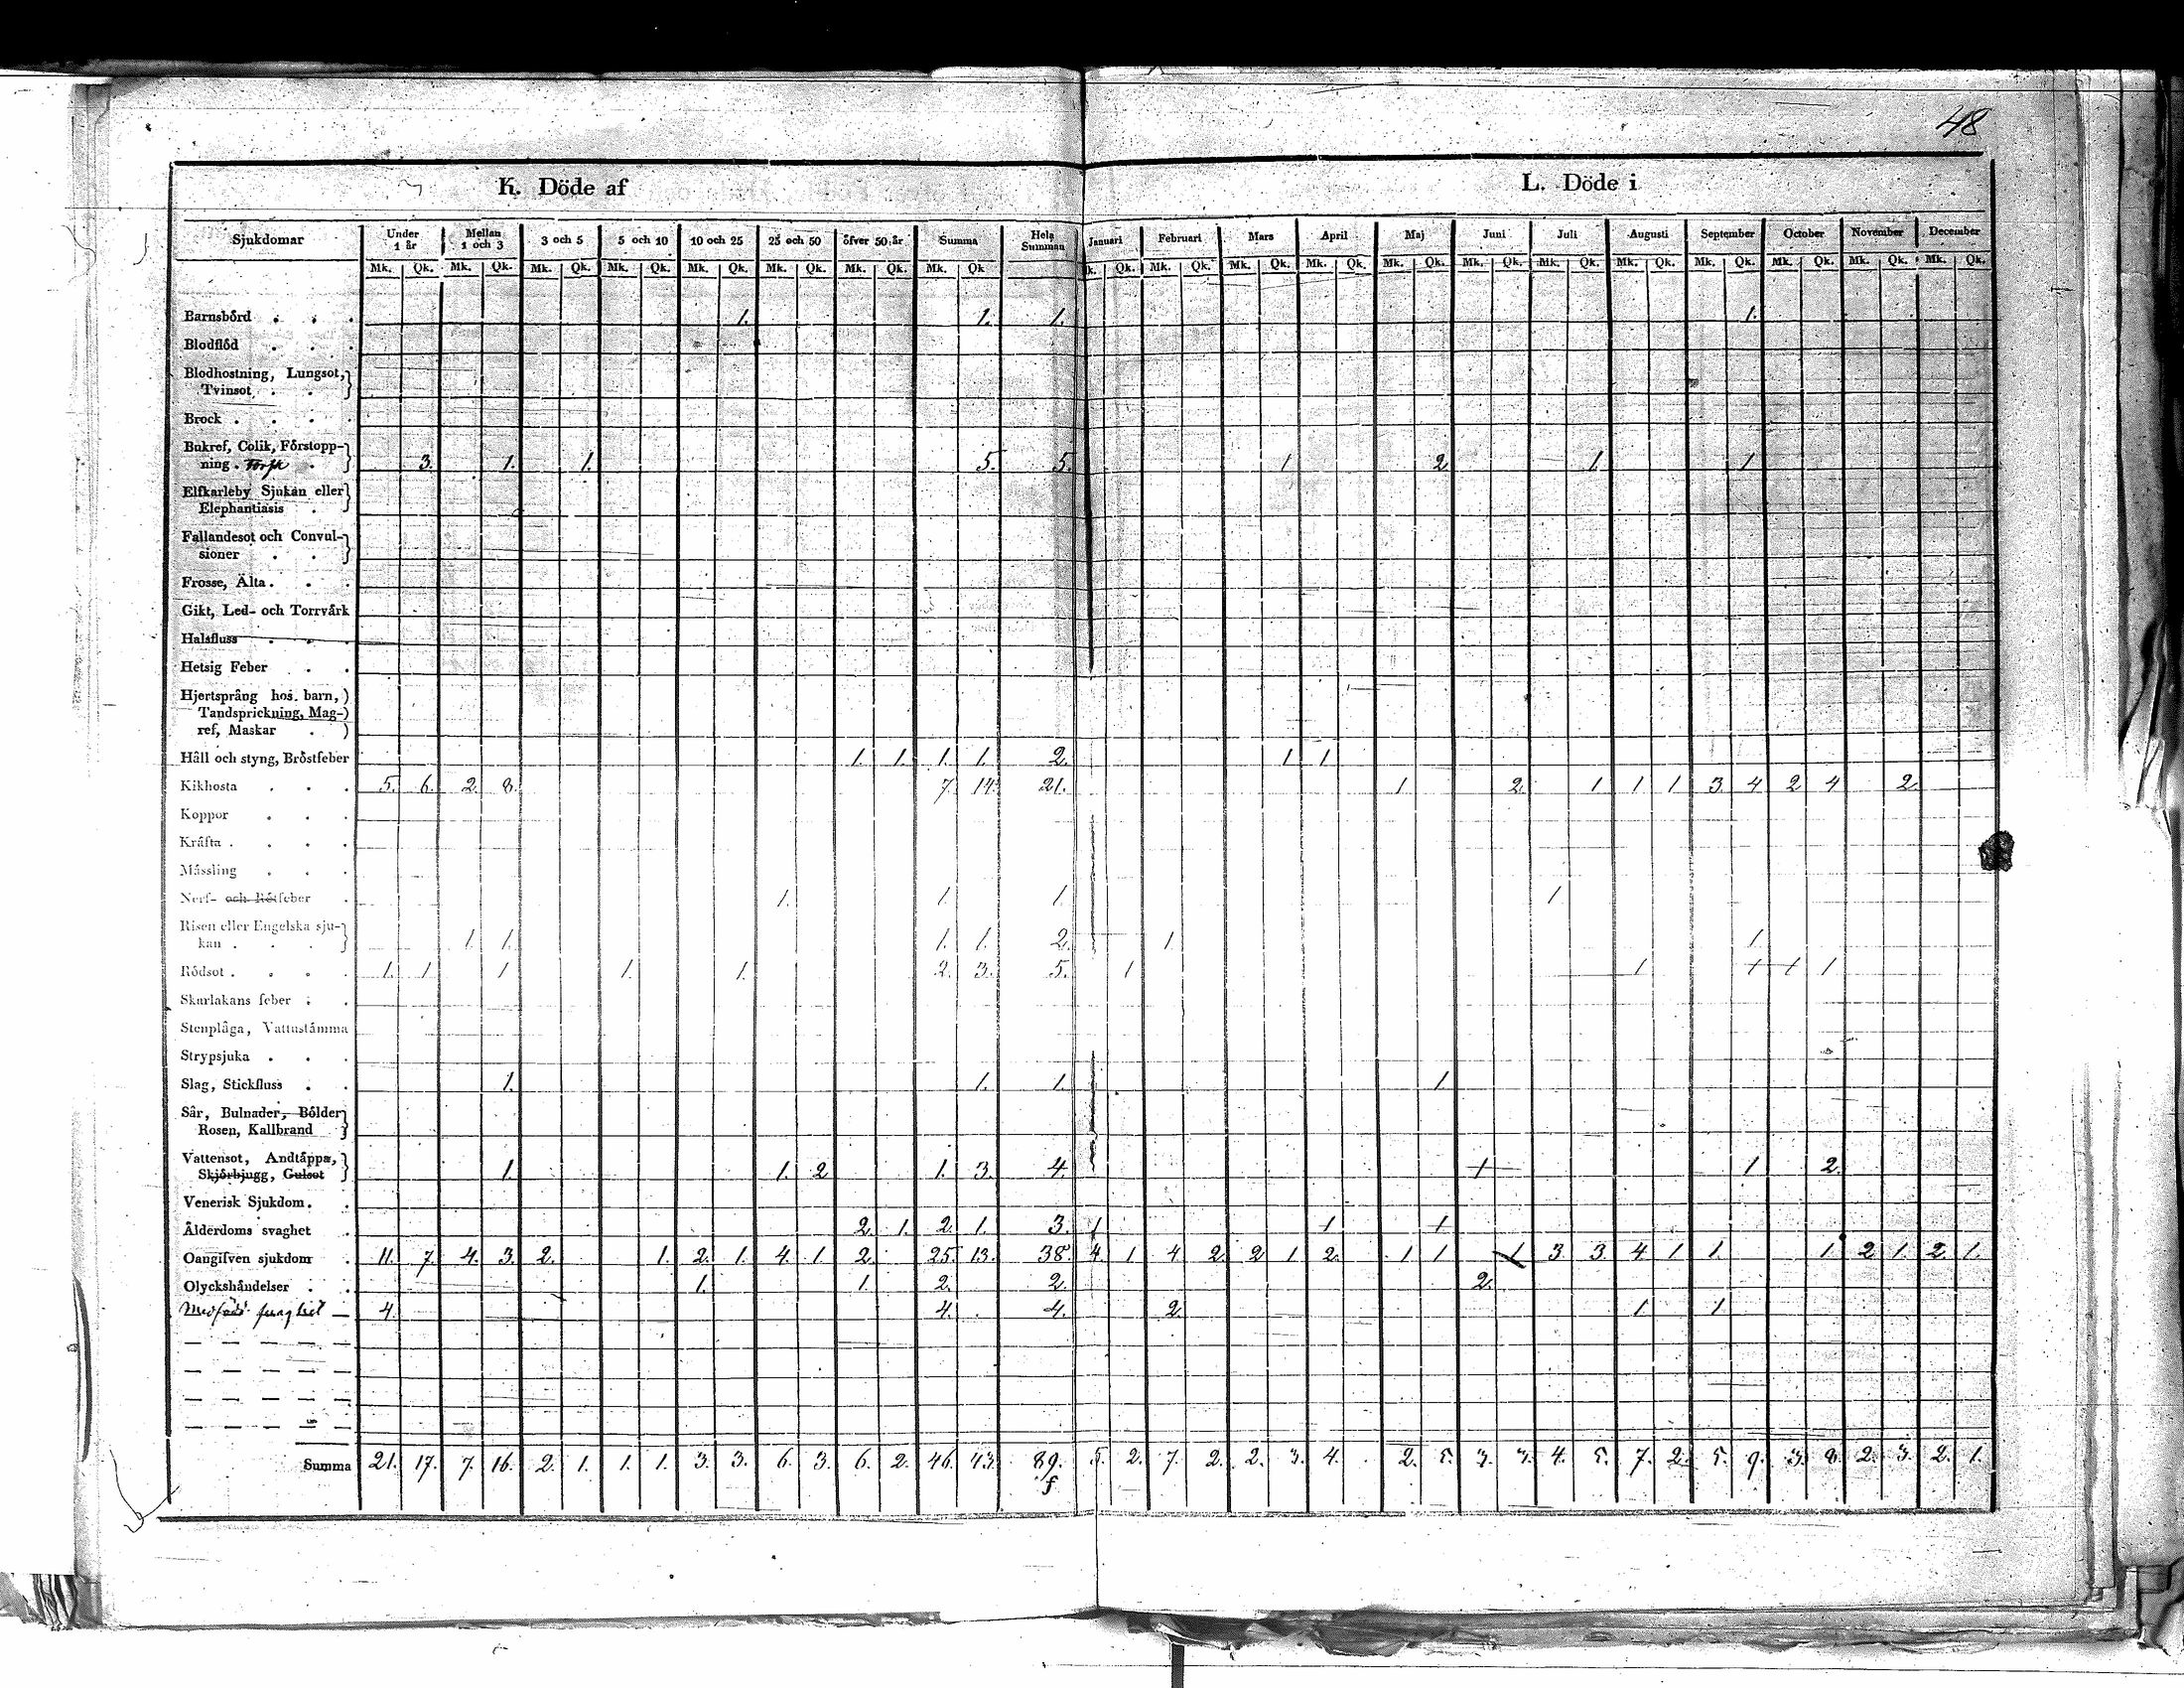 48
K. Döde af L. Döde i
Sjukdomar Under 1 år Mellan 1 och 3 3 och 5 5 och 10 10 och 25 25 och 50 öfver 50 år Summa Hela Summan Januari Februari Mars April Maj Juni Juli Augusti September October November December
Mk. Qk. Mk. Qk. Mk. Qk. Mk. Qk. Mk. Qk. Mk. Qk. Mk. Qk. Mk. Qk k. Qk. Mk. Qk. Mk. Qk. Mk. Qk. Mk. Qk. Mk. Qk. Mk. Qk. Mk. Qk. Mk. Qk. Mk. Qk. Mk. Qk. Mk. Qk.
Barnsbörd . . . 1. 1. 1. 1.
Blodflöd . . .
Blodhostning, Lungsot,
Tvinsot . .
Brock . . . .
Bukref, Colik, Förstopp-
ning . . 3. 1. 1. 5. 5. 1 2 1 1
Elfkarleby Sjukan eller
Elephantiasis .
Fallandesot och Convul-
sioner . .
Frosse, Älta . . .
Gikt, Led- och Torrvärk
Halsfluss . . .
Hetsig Feber . .
Hjertsprång hos barn,
Tandsprickning, Mag-
ref, Maskar .
Håll och styng, Bröstfeber 1. 1. 1. 1. 2. 1 1
Kikhosta . . . 5. 6. 2. 8. 7. 14. 21. 1 2. 1 1 1 3. 4 2 4 2.
Koppor . . .
Kräfta . . . .
Mässling . . .
Nerf- och Rötfeber . 1. 1. 1. 1.
Risen eller Engelska sju-
kan . . . 1. 1. 1. 1. 2. 1. 1
Rödsot . . . . 1. 1 1 1. 1. 2. 3. 5. 1 1 1 1 1
Skarlakans feber . .
Stenplåga, Vattustämma
Strypsjuka . . .
Slag, Stickfluss . . 1. 1. 1. 1.
Sår, Bulnader, Bölder
Rosen, Kallbrand
Vattensot, Andtäppa,
Skjörbjugg, Gulsot 1. 1. 2 1. 3. 4. 1 1 2.
Venerisk Sjukdom . .
Ålderdoms svaghet 2. 1. 2. 1. 3. 1 1 1
Oangifven sjukdom . 11. 7. 4. 3. 2. 1. 2. 1. 4. 1. 2. 25. 13. 38. 4. 1 4 2. 2 1 2. 1 1 1 3 3 4 1 1. 1. 2 1. 2. 1.
Olyckshändelser . . 1. 1. 2. 2. 2.
4. 4. 4. 2. 1. 1
Summa 21. 17. 7. 16. 2. 1. 1. 1. 3. 3. 6. 3. 6. 2. 46. 43. 89. 5. 2. 7. 2. 2. 3. 4. 2. 5. 3. 3. 4. 5. 7. 2. 5. 9. 3. 8. 2. 3. 2. 1.